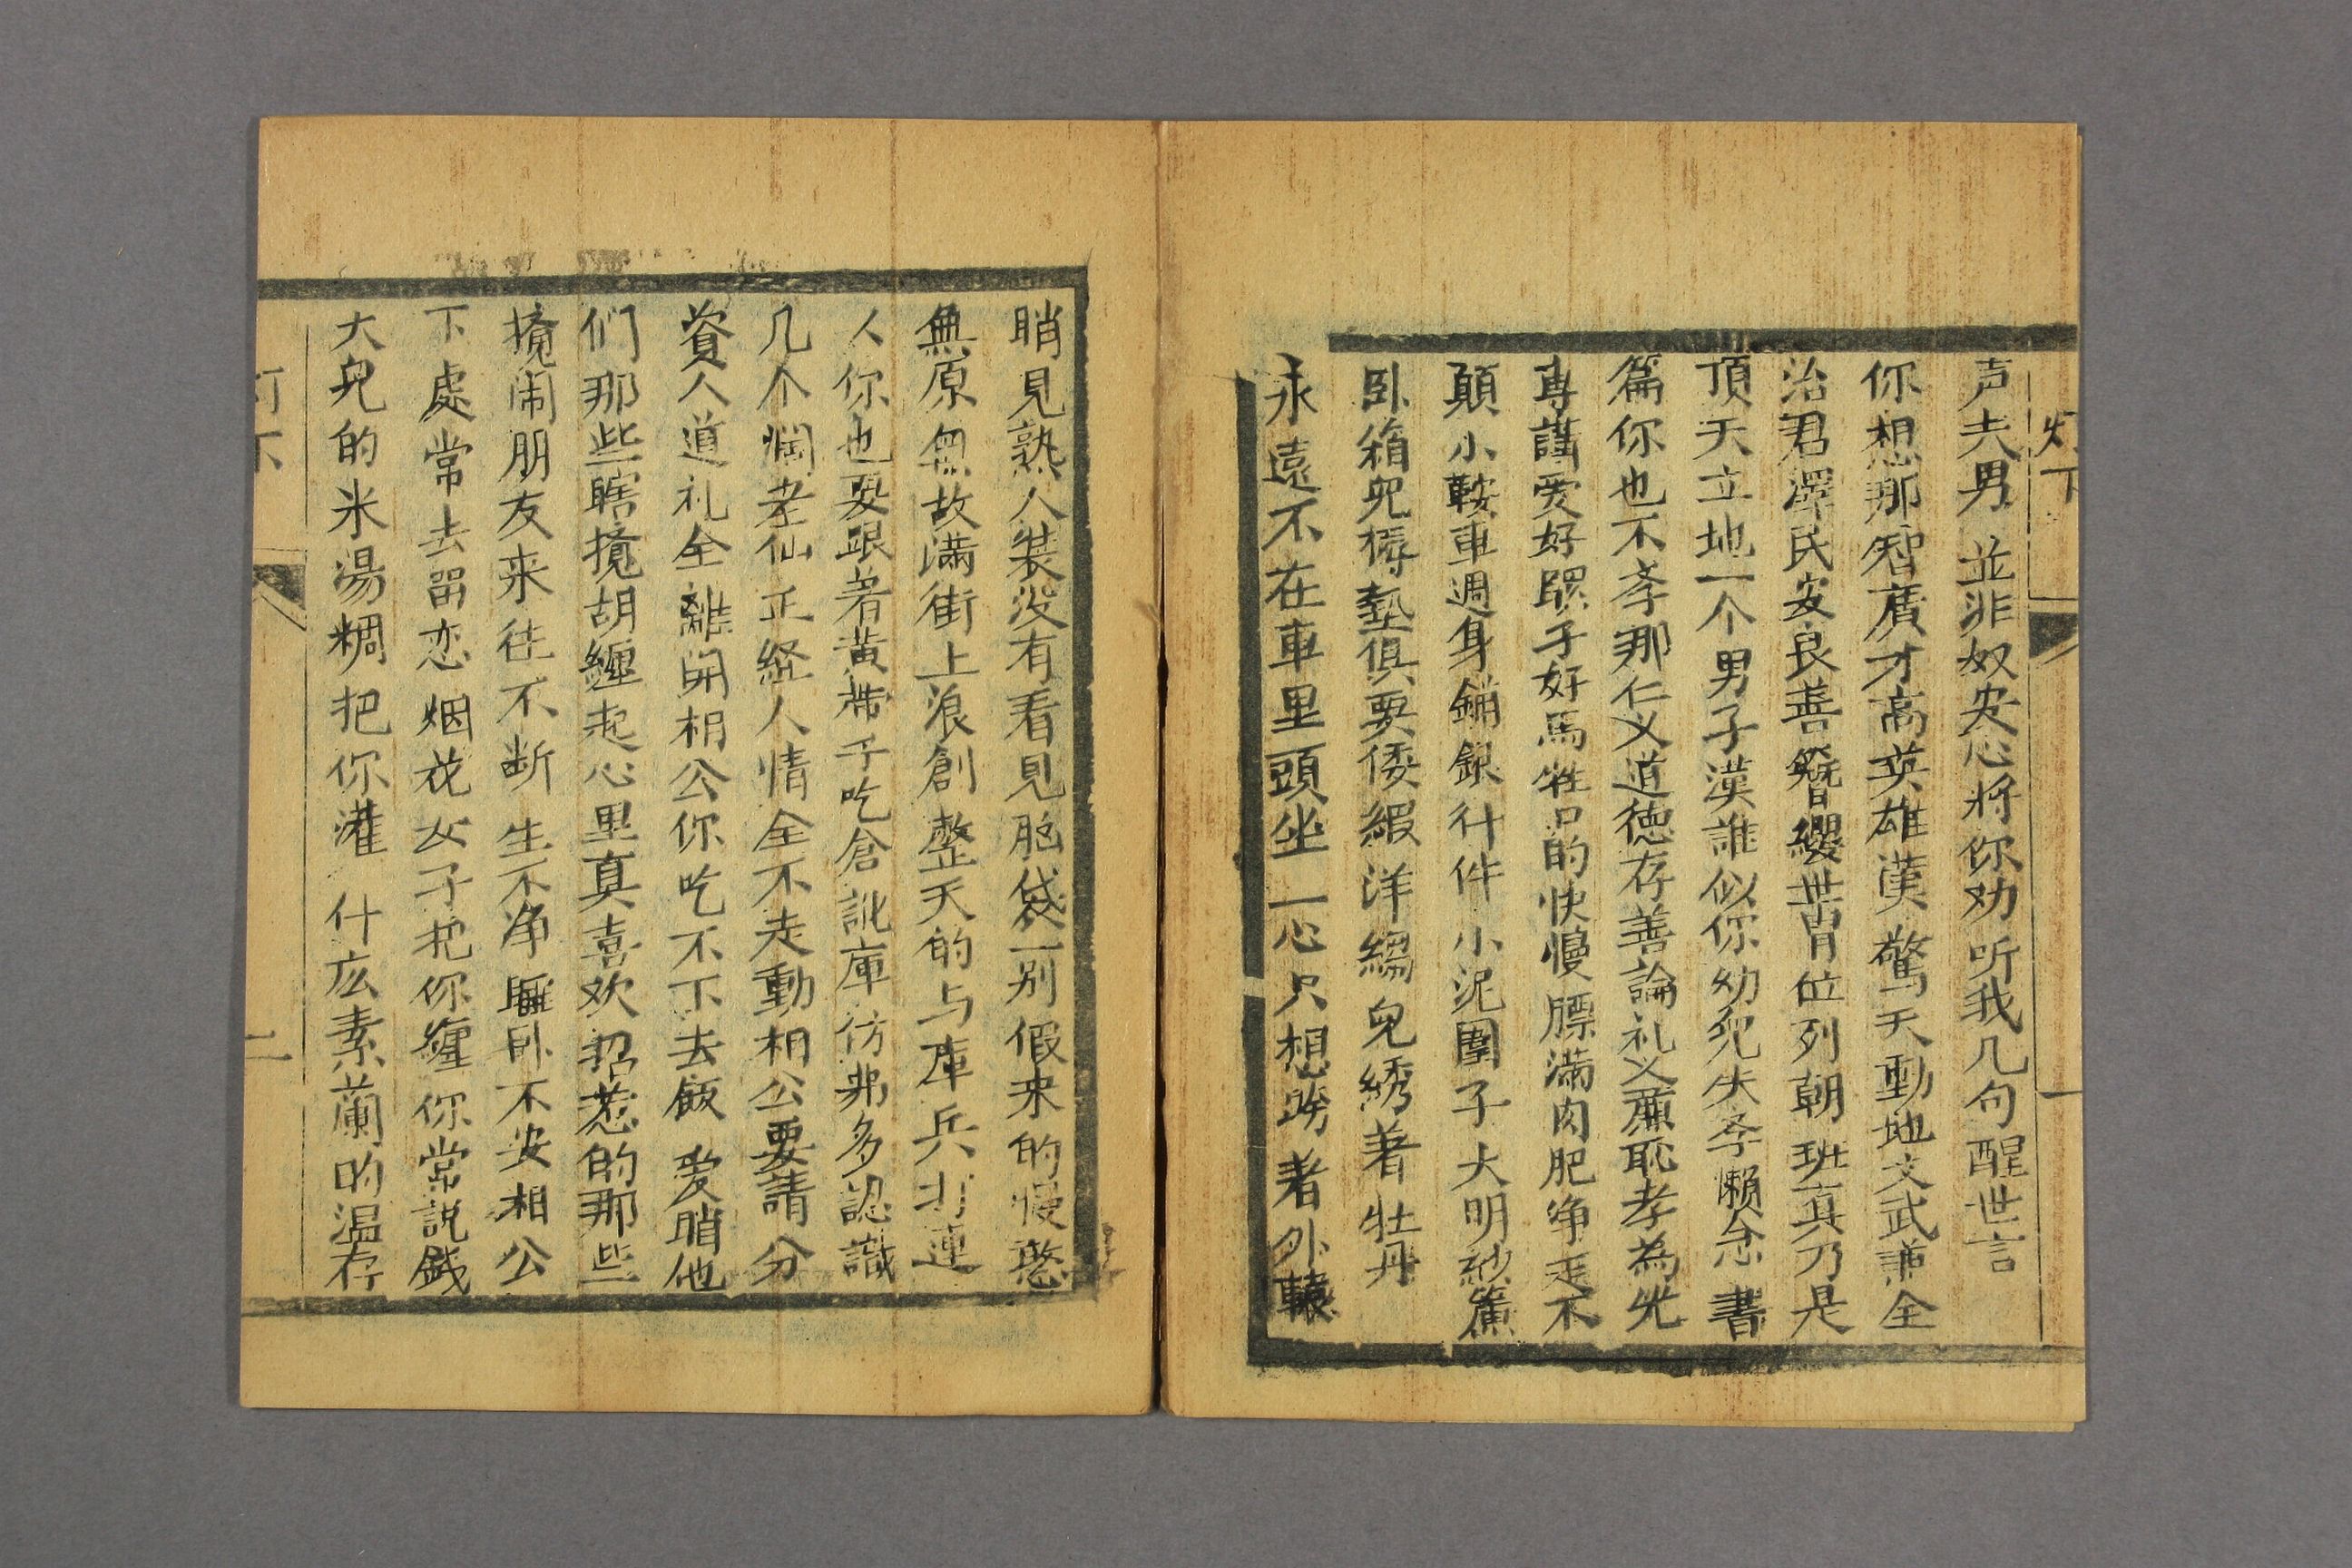 灯下
一
声夫男 並非奴安心将你劝 听我几句醒世言
你想那智广才高英雄漢 驚天動地文武兼全
治君澤民安良善 簪纓世冑位列朝班真乃是
頂天立地一个男子漢誰似你幼兒失孝懶念 書
篇你也不孝那仁义道德存善論礼义廉恥孝為先
專講爱好騾子好馬牲口的快慢膘满肉肥净走不
顛小鞍車週身鋪銀什件小泥圍子大明紗簾
卧箱兒褥墊俱要倭緞洋縐兒綉著牡丹
永遠不在車里頭坐一心只想跨者外轅
睄見熟人裝没有看見胳袋一别假来的慢憨
無原無故满街上浪創整天的与庫兵打連
人你也要跟着黄帶子吃倉訛庫彷弗多認識
几个濶孝仙正経人情全不走動相公要請分
資人道礼全離開相公你吃不下去飯 爱睄他
们那些瞎攪胡纏起心里真喜欢招惹的那些
攪闹朋友来往不断 生不净睡卧不安相公
下處常去留恋烟花女子把你纏你常説錢
大兒的米湯糊把你灌 什広素蘭的温存
灯下
二